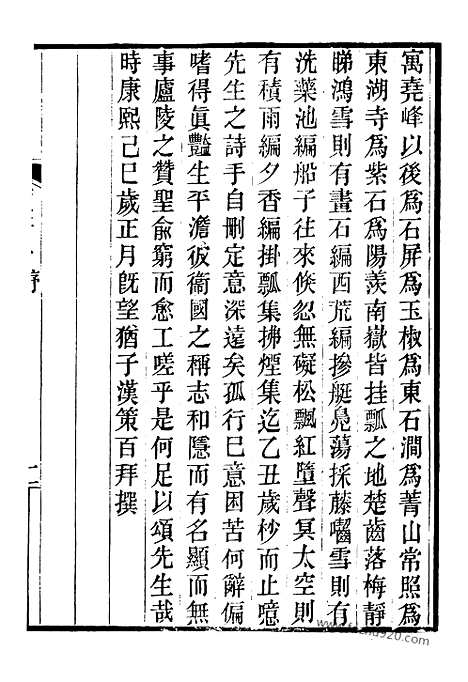 寓堯峰以後爲石屏爲玉椒爲東石澗爲菁山常照爲
東湖寺爲紫石爲陽羨南嶽皆挂瓢之地楚齒落梅靜
睇鴻雪則有畫石編西荒編摻艇鳧蕩採藤囓雪則有
洗藥池編船子往來倐忽無礙松飄紅墮聲冥太空則
有積雨編夕香編掛瓢集拂煙集迄乙丑歲杪而止噫
先生之詩手自刪定意深遠矣孤行巳意困苦何辭偏
嗜得眞豔生平澹彼衛國之稱志和隱而有名顯而無
事廬陵之贊聖俞窮而愈工嗟乎是何足以頌先生哉
時康熙己巳歲正月旣望猶子漢策百拜撰
序